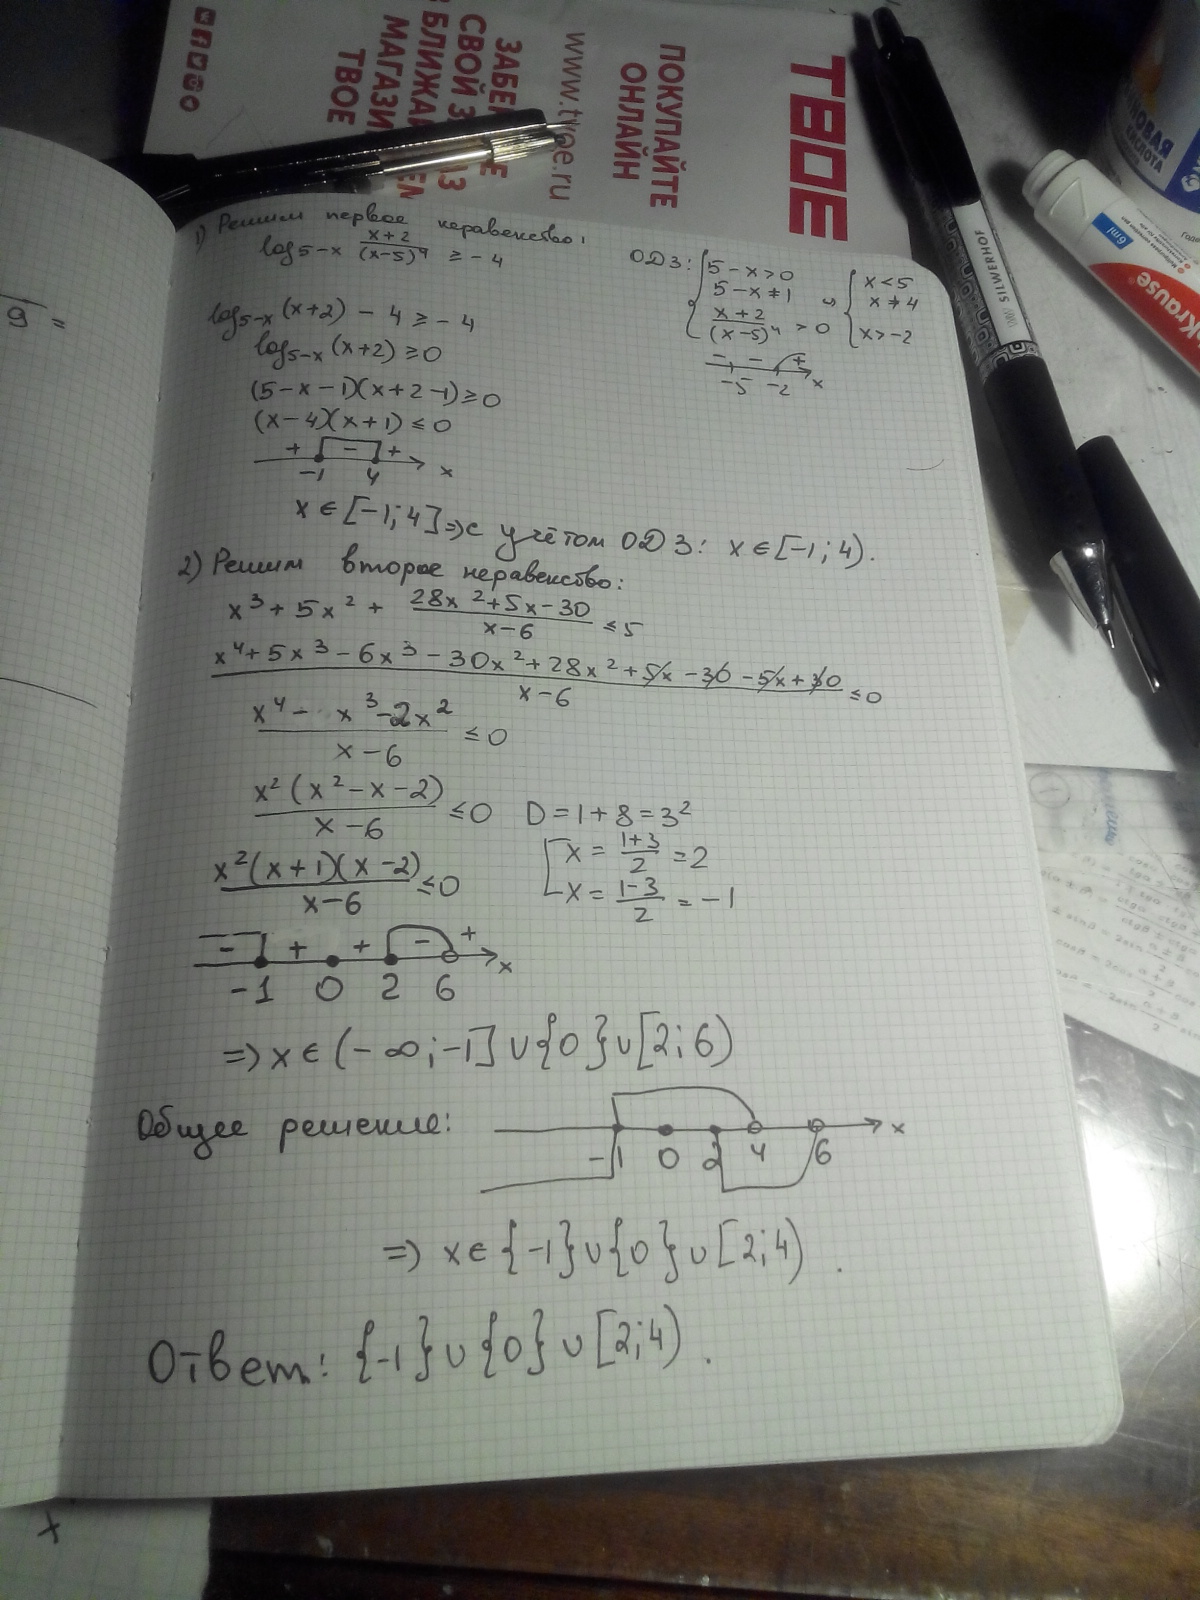 ТВОЕ
ПОКУПАЙТЕ
ОНЛАЙН
www.tvoe.ru
СВОЙ
МАГАЗИ
ТВОЕ
НОВАЯ
КИСЛОТА
6ml
Krause
SILWERHOF
9 =
1) Решим первое неравенство:
log_{5-x} \frac{x+2}{(x-5)^4} ≥ -4
ОДЗ: { 5-x>0
5-x≠1
\frac{x+2}{(x-5)^4} > 0
{ x<5
x≠4
x>-2
- - +
-5 -2 x
log_{5-x}(x+2) - 4 ≥ -4
log_{5-x}(x+2) ≥ 0
(5-x-1)(x+2-1) ≥ 0
(x-4)(x+1) ≤ 0
+ - +
-1 4 x
x ∈ [-1; 4] => с учётом ОДЗ: x ∈ [-1; 4).
2) Решим второе неравенство:
x^3 + 5x^2 + \frac{28x^2+5x-30}{x-6} ≤ 5
\frac{x^4+5x^3-6x^3-30x^2+28x^2+5x-30-5x+30}{x-6} ≤ 0
\frac{x^4 - x^3 - 2x^2}{x-6} ≤ 0
\frac{x^2(x^2-x-2)}{x-6} ≤ 0 D = 1+8 = 3^2
[ x = \frac{1+3}{2} = 2
x = \frac{1-3}{2} = -1
\frac{x^2(x+1)(x-2)}{x-6} ≤ 0
- + + - +
-1 0 2 6 x
=> x ∈ (-∞; -1] ∪ {0} ∪ [2; 6)
Общее решение:
-1 0 2 4 6 x
=> x ∈ {-1} ∪ {0} ∪ [2; 4).
Ответ: {-1} ∪ {0} ∪ [2; 4).